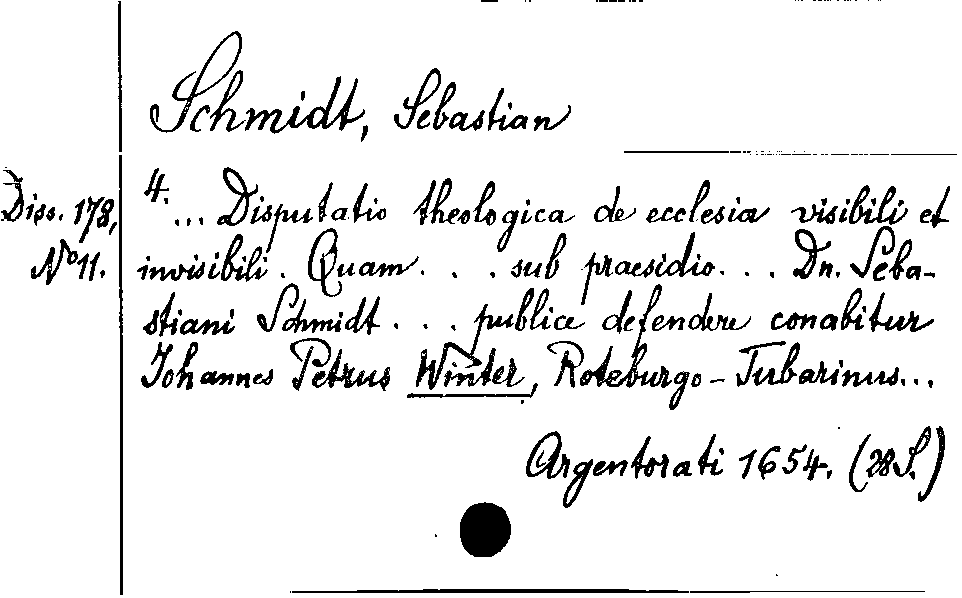 Schmidt, Sebastian
Diss. 178,
No 11.
4.
... Disputatio theologica de ecclesia visibili et
invisibili. Quam . . . sub praesidio . . . Dn. Seba-
stiani Schmidt . . . publice defendere conabitur
Johannes Petrus Winter, Roteburgo-Tubarinus...
Argentorati 1654. (28 S.)